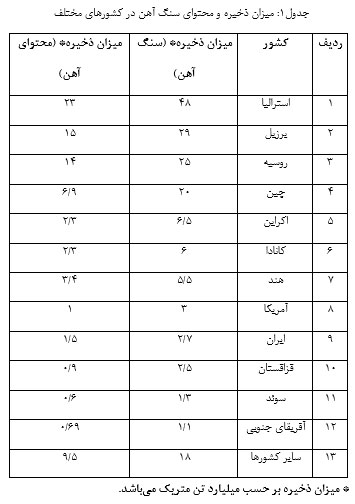 جدول۱: میزان ذخیره و محتوای سنگ آهن در کشورهای مختلف
ردیف کشور میزان ذخیره* (سنگ میزان ذخیره* (محتوای
آهن) آهن)
۱ استرالیا ۴۸ ۲۳
۲ برزیل ۲۹ ۱۵
۳ روسیه ۲۵ ۱۴
۴ چین ۲۰ ۶/۹
۵ اکراین ۶/۵ ۲/۳
۶ کانادا ۶ ۲/۳
۷ هند ۵/۵ ۳/۴
۸ آمریکا ۳ ۱
۹ ایران ۲/۷ ۱/۵
۱۰ قزاقستان ۲/۵ ۰/۹
۱۱ سوئد ۱/۳ ۰/۶
۱۲ آفریقای جنوبی ۱/۱ ۰/۶۹
۱۳ سایر کشورها ۱۸ ۹/۵
* میزان ذخیره بر حسب میلیارد تن متریک می‌باشد.